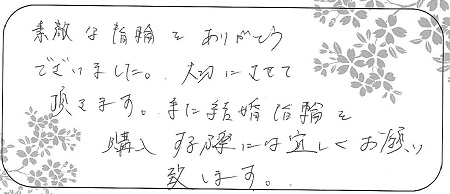 素敵な指輪をありがとう
ございました。大切にさせて
頂きます。また結婚指輪を
購入する際には宜しくお願い
致します。